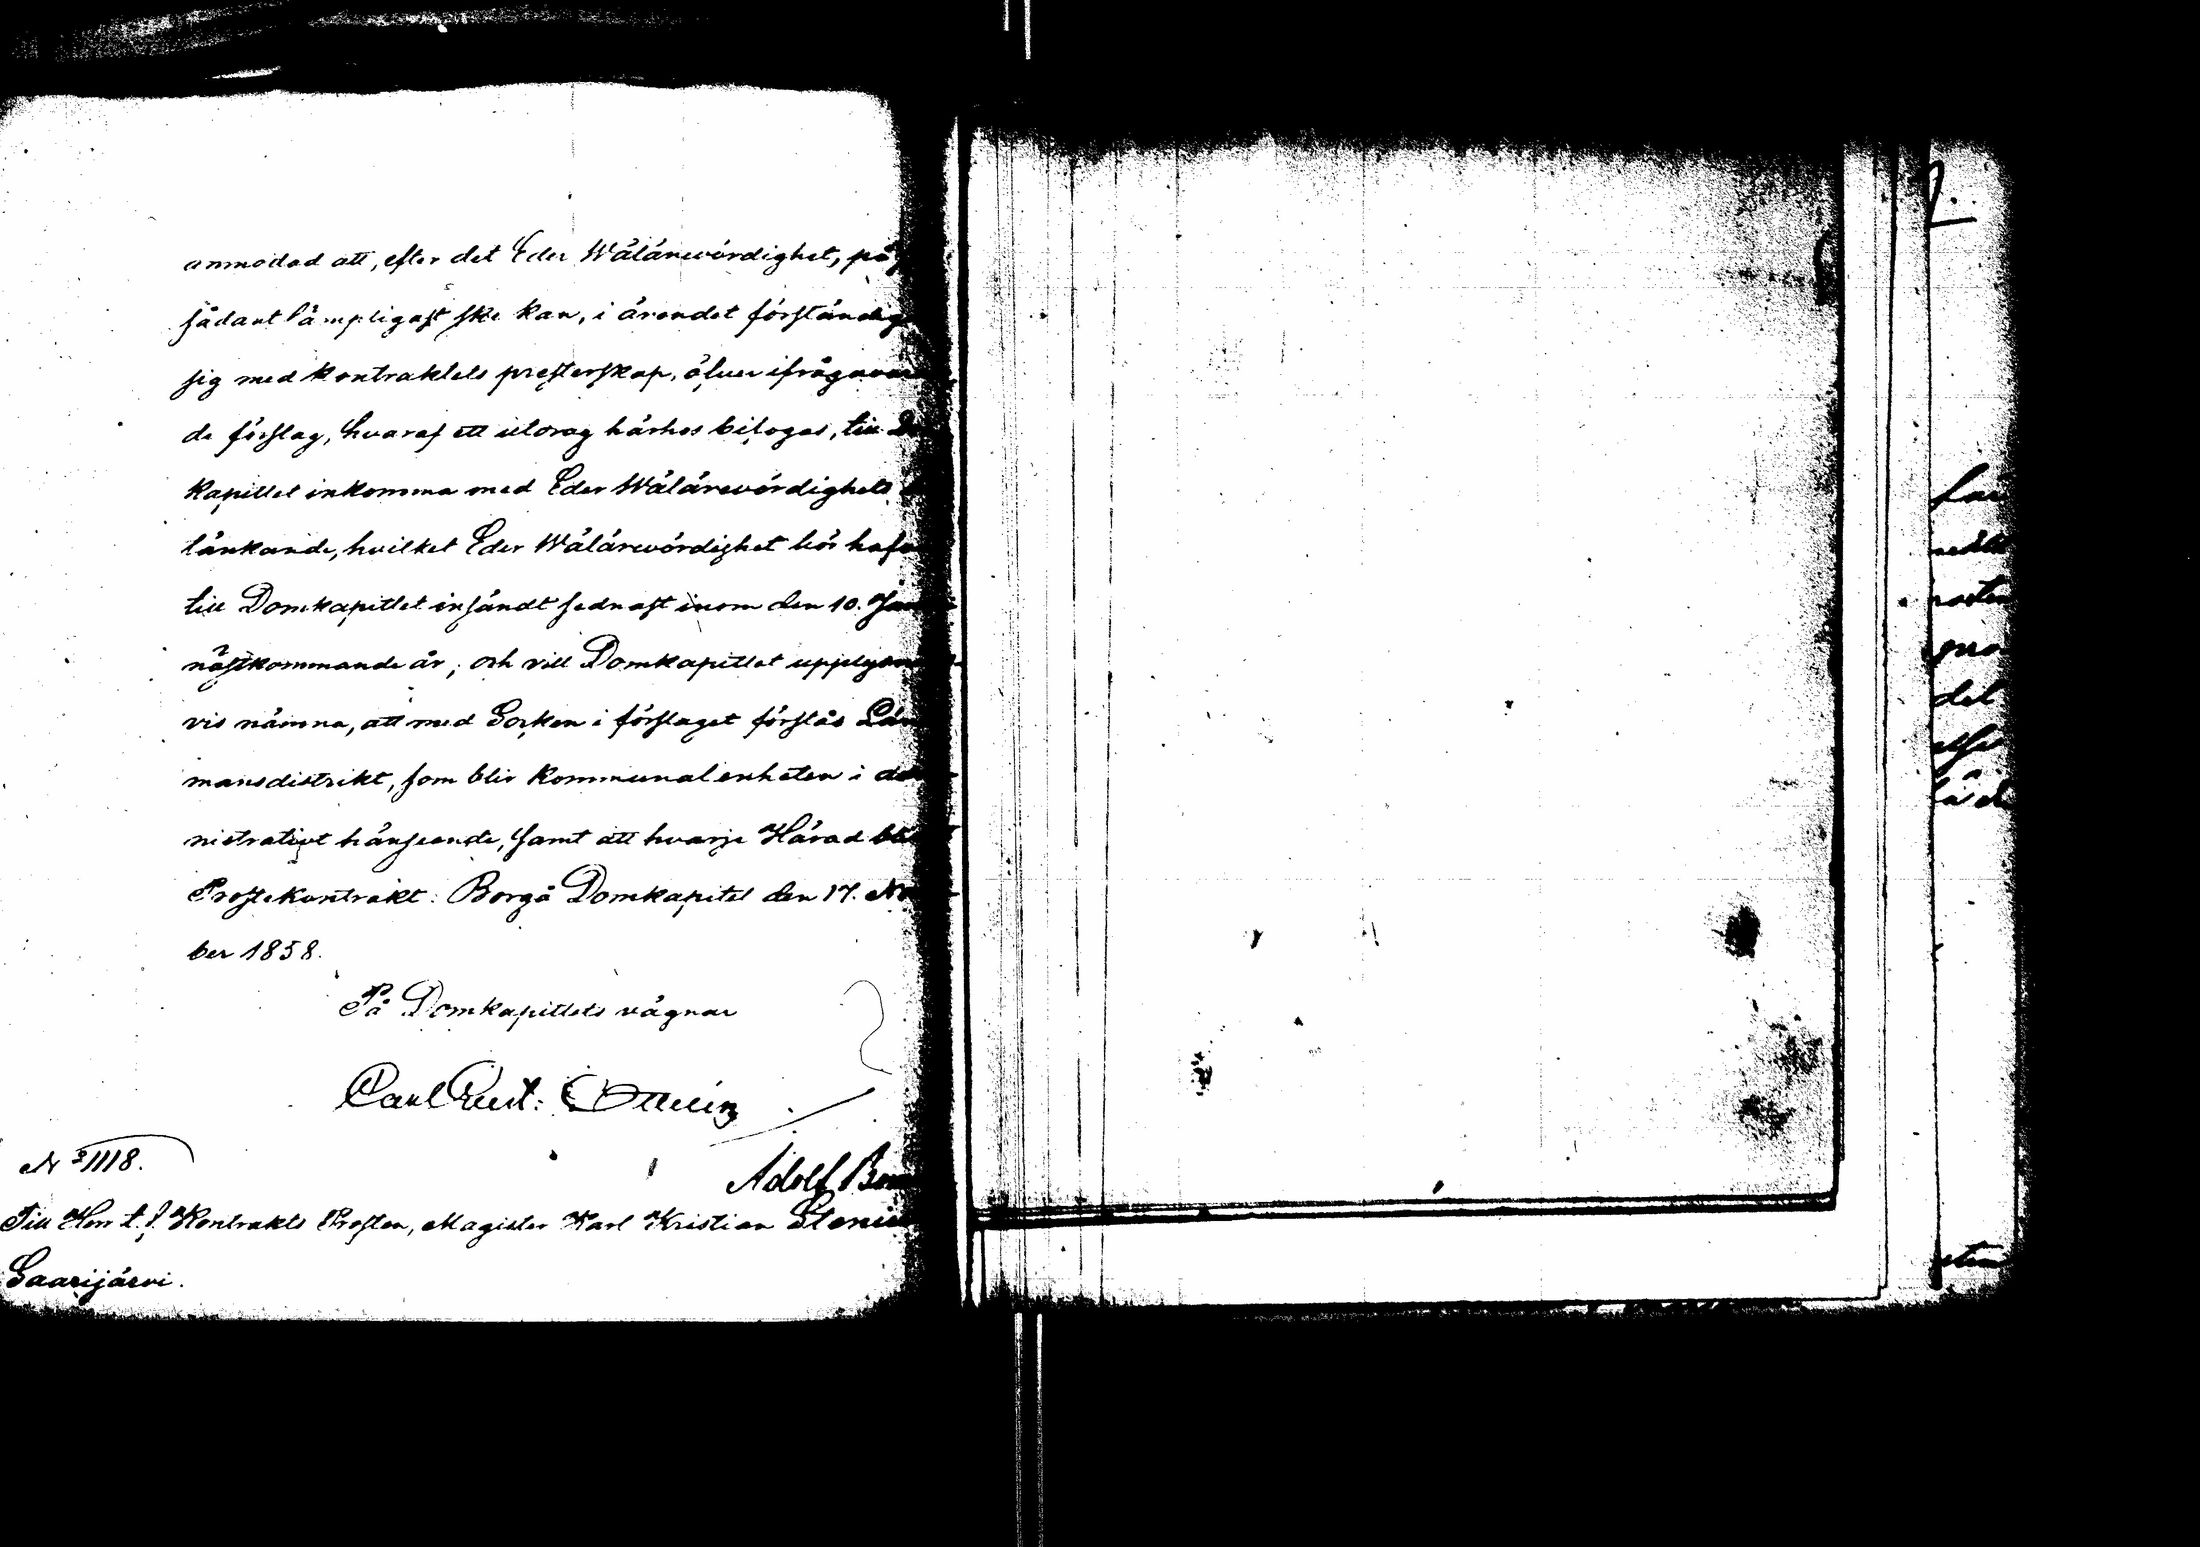 anmodad att, efter det Eder Wälärewördighet, på
sådant lämpligast ske kan, i ärendet förständig
sig med kontraktets presterskap, öfver ifrågava
de förslag, hvaraf ett utdrag härhos bilogas, till Do
kapitlet inkomma med Eder Wälärewördighets
tänkande, hvilket Eder Wälärewördighet bör hafva
till Domkapitlet insändt sednast inom den 10. Jan
nästkommande år; och vill Domkapitlet upplysn
vis nämna, att med Socken i förslaget förstås Län
mansdistrikt, som blir kommunalenheten i
nistrativt hänseende, samt att hvarje Härad bli
Prostekontrakt. Borgå Domkapitel den 17. No
ber 1858.
På Domkapitlets vägnar
Carl Gust: Ottelin
Adolf
No 1118.
Till Herr t. f. Kontrakts Prosten, Magister Karl Kristian Steniu
Saarijärvi.
2.
del